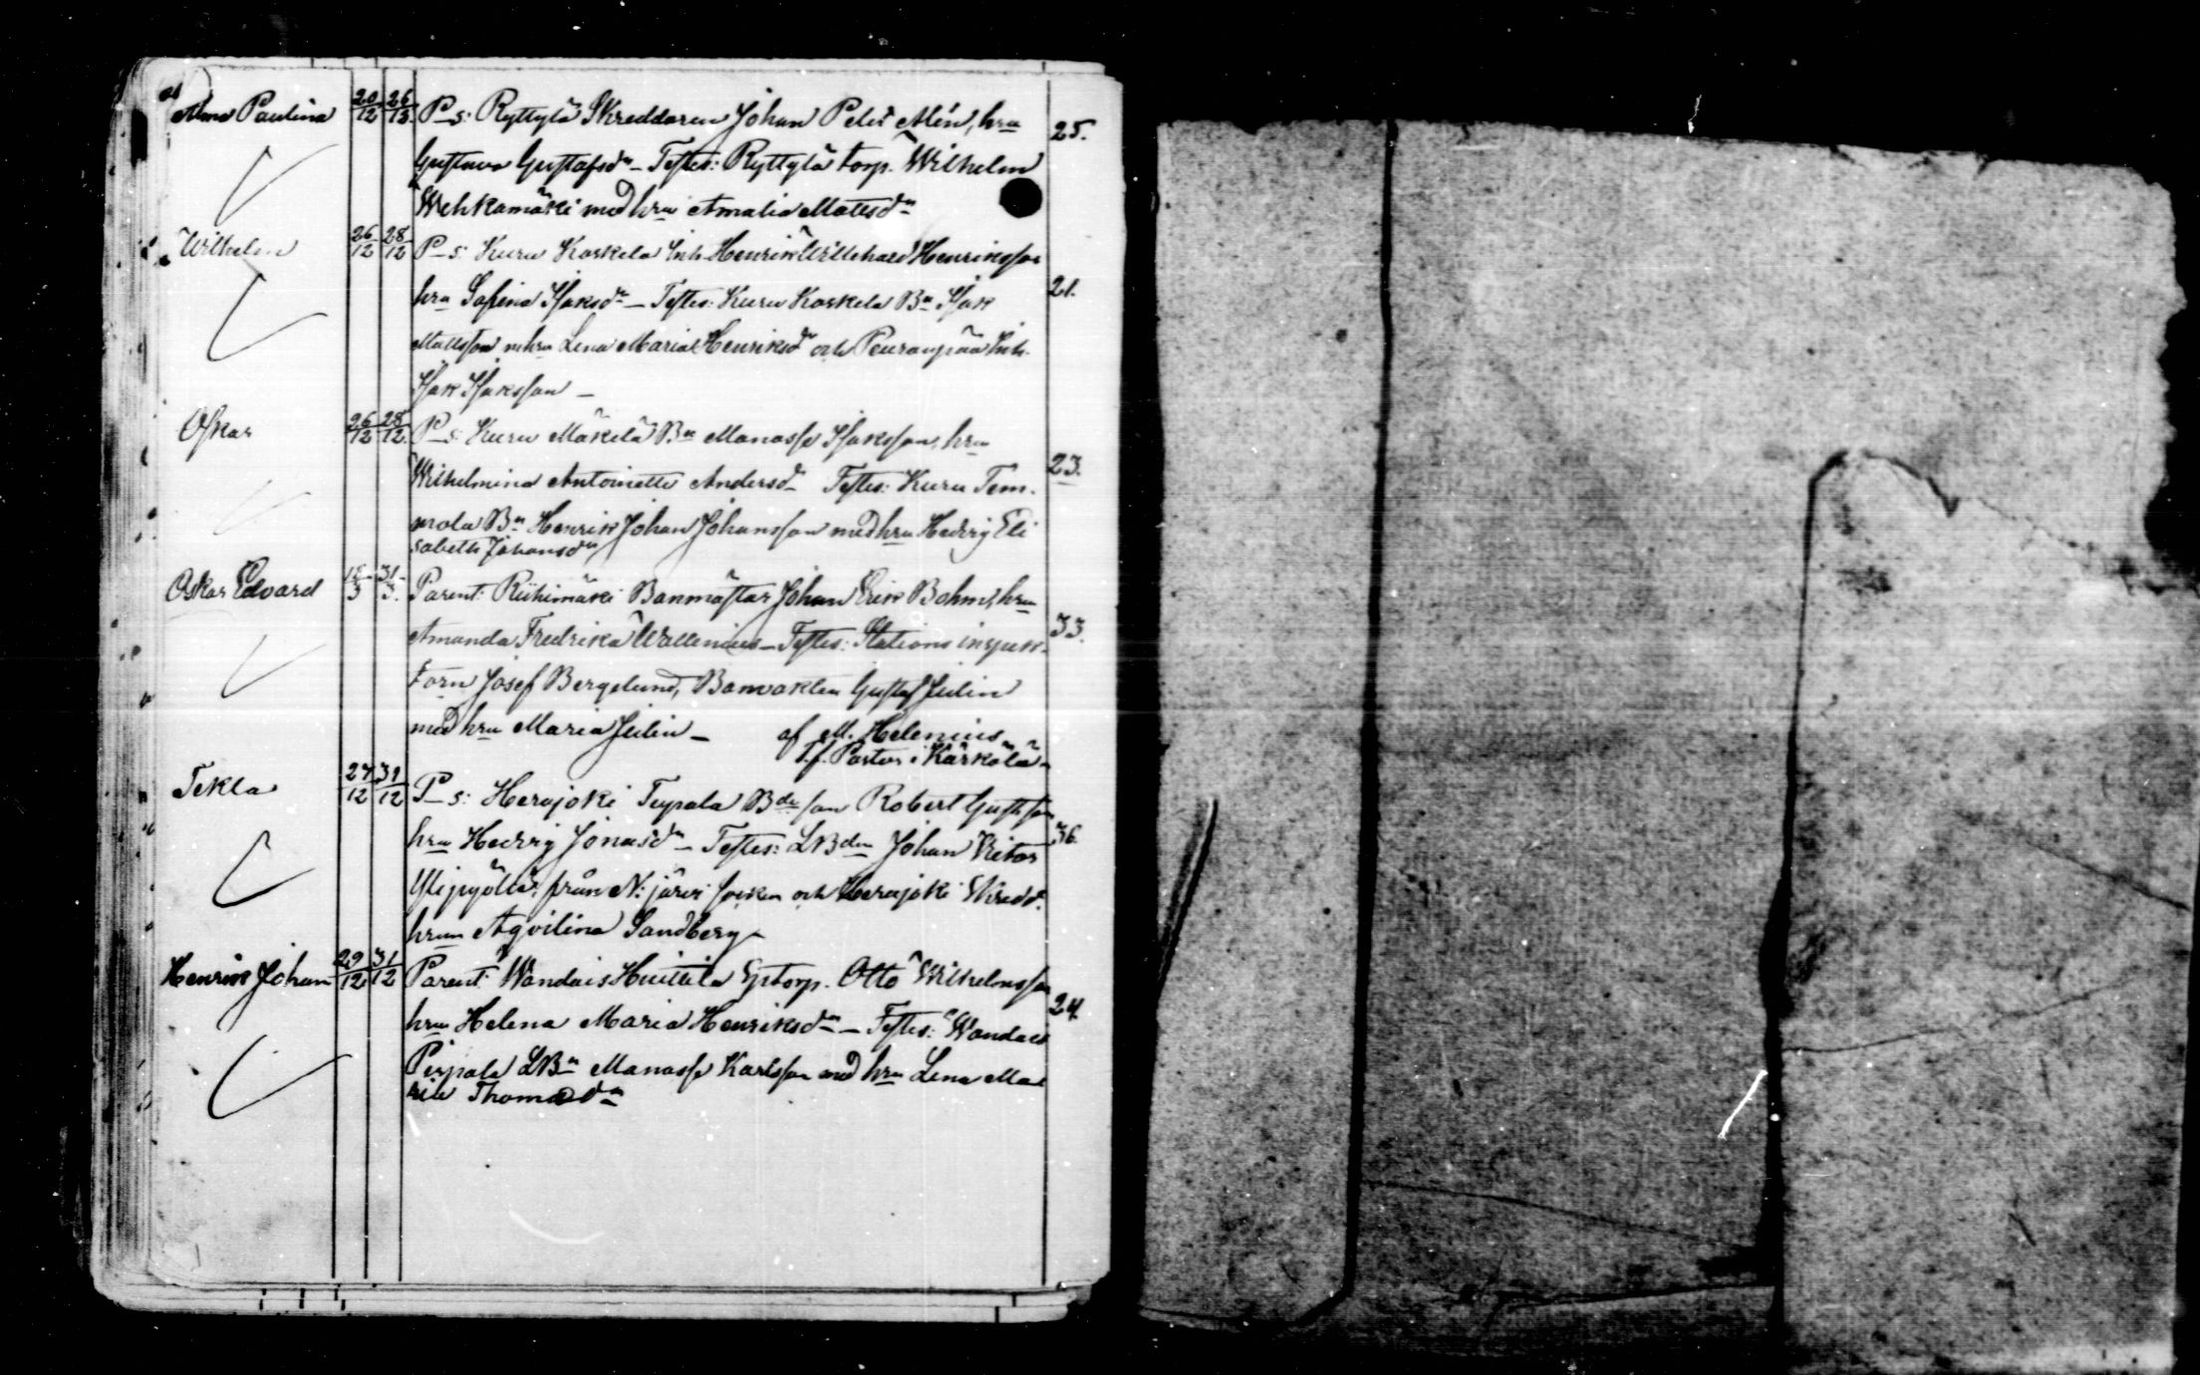 Alma Paulina 20/12 26/12 P_s: Ryttylä Skreddaren Johan Peter Alén, hru 25.
Gustava Gustafsdr – Testes: Ryttylä torp. Wilhelm
Wehkamäki med hru Amalia Mattsdr
Wilhelm 26/12 28/12 P_s: Kuru Koskela Inh. Henrik Willehard Henriksson
hru Sofina Isaksdr – Testes: Kuru Koskela Bn Isak 21.
Mattsson m hru Lena Maria Henriksdr och Peuranpää Inh.
Isak Isaksson –
Oskar 26/12 28/12 P_s: Kuru Mäkelä Bn Manasse Isaksson, hru
Wilhelmina Antoinette Andersd. Testes: Kuru Tem- 23.
mola Bn Henrik Johan Johansson med hru Hedvig Eli
sabeth Johansdr
Oskar Edvard 31/3. Parent: Riihimäki Banmästar Johan Erik Bohm, hru
Amanda Fredrika Wallenius – Testes: Stations inspek- 33.
torn Josef Bergelund, Banvakten Gustaf
med hru Maria – af M. Helenius
T.f. Pastor i Kärkölä.
Tekla 27/12 31/12 P_s: Herajoki Teupala Bde son Robert Gustfson
hru Hedvig Jonasdr – Testes: LBden Johan Viktor 36.
från N: järvi socken och Herajoki Skredd.
hrun Aqvilina Sandberg
Henrik Johan 29/12 31/12 Parent: Wandais Huittila torp. Otto Wilhelmsson
hru Helena Maria Henriksdr – Testes: Wandais 24.
Pirpala LBn Manasse Karlsson med hru Lena Ma
ria Thomasdr